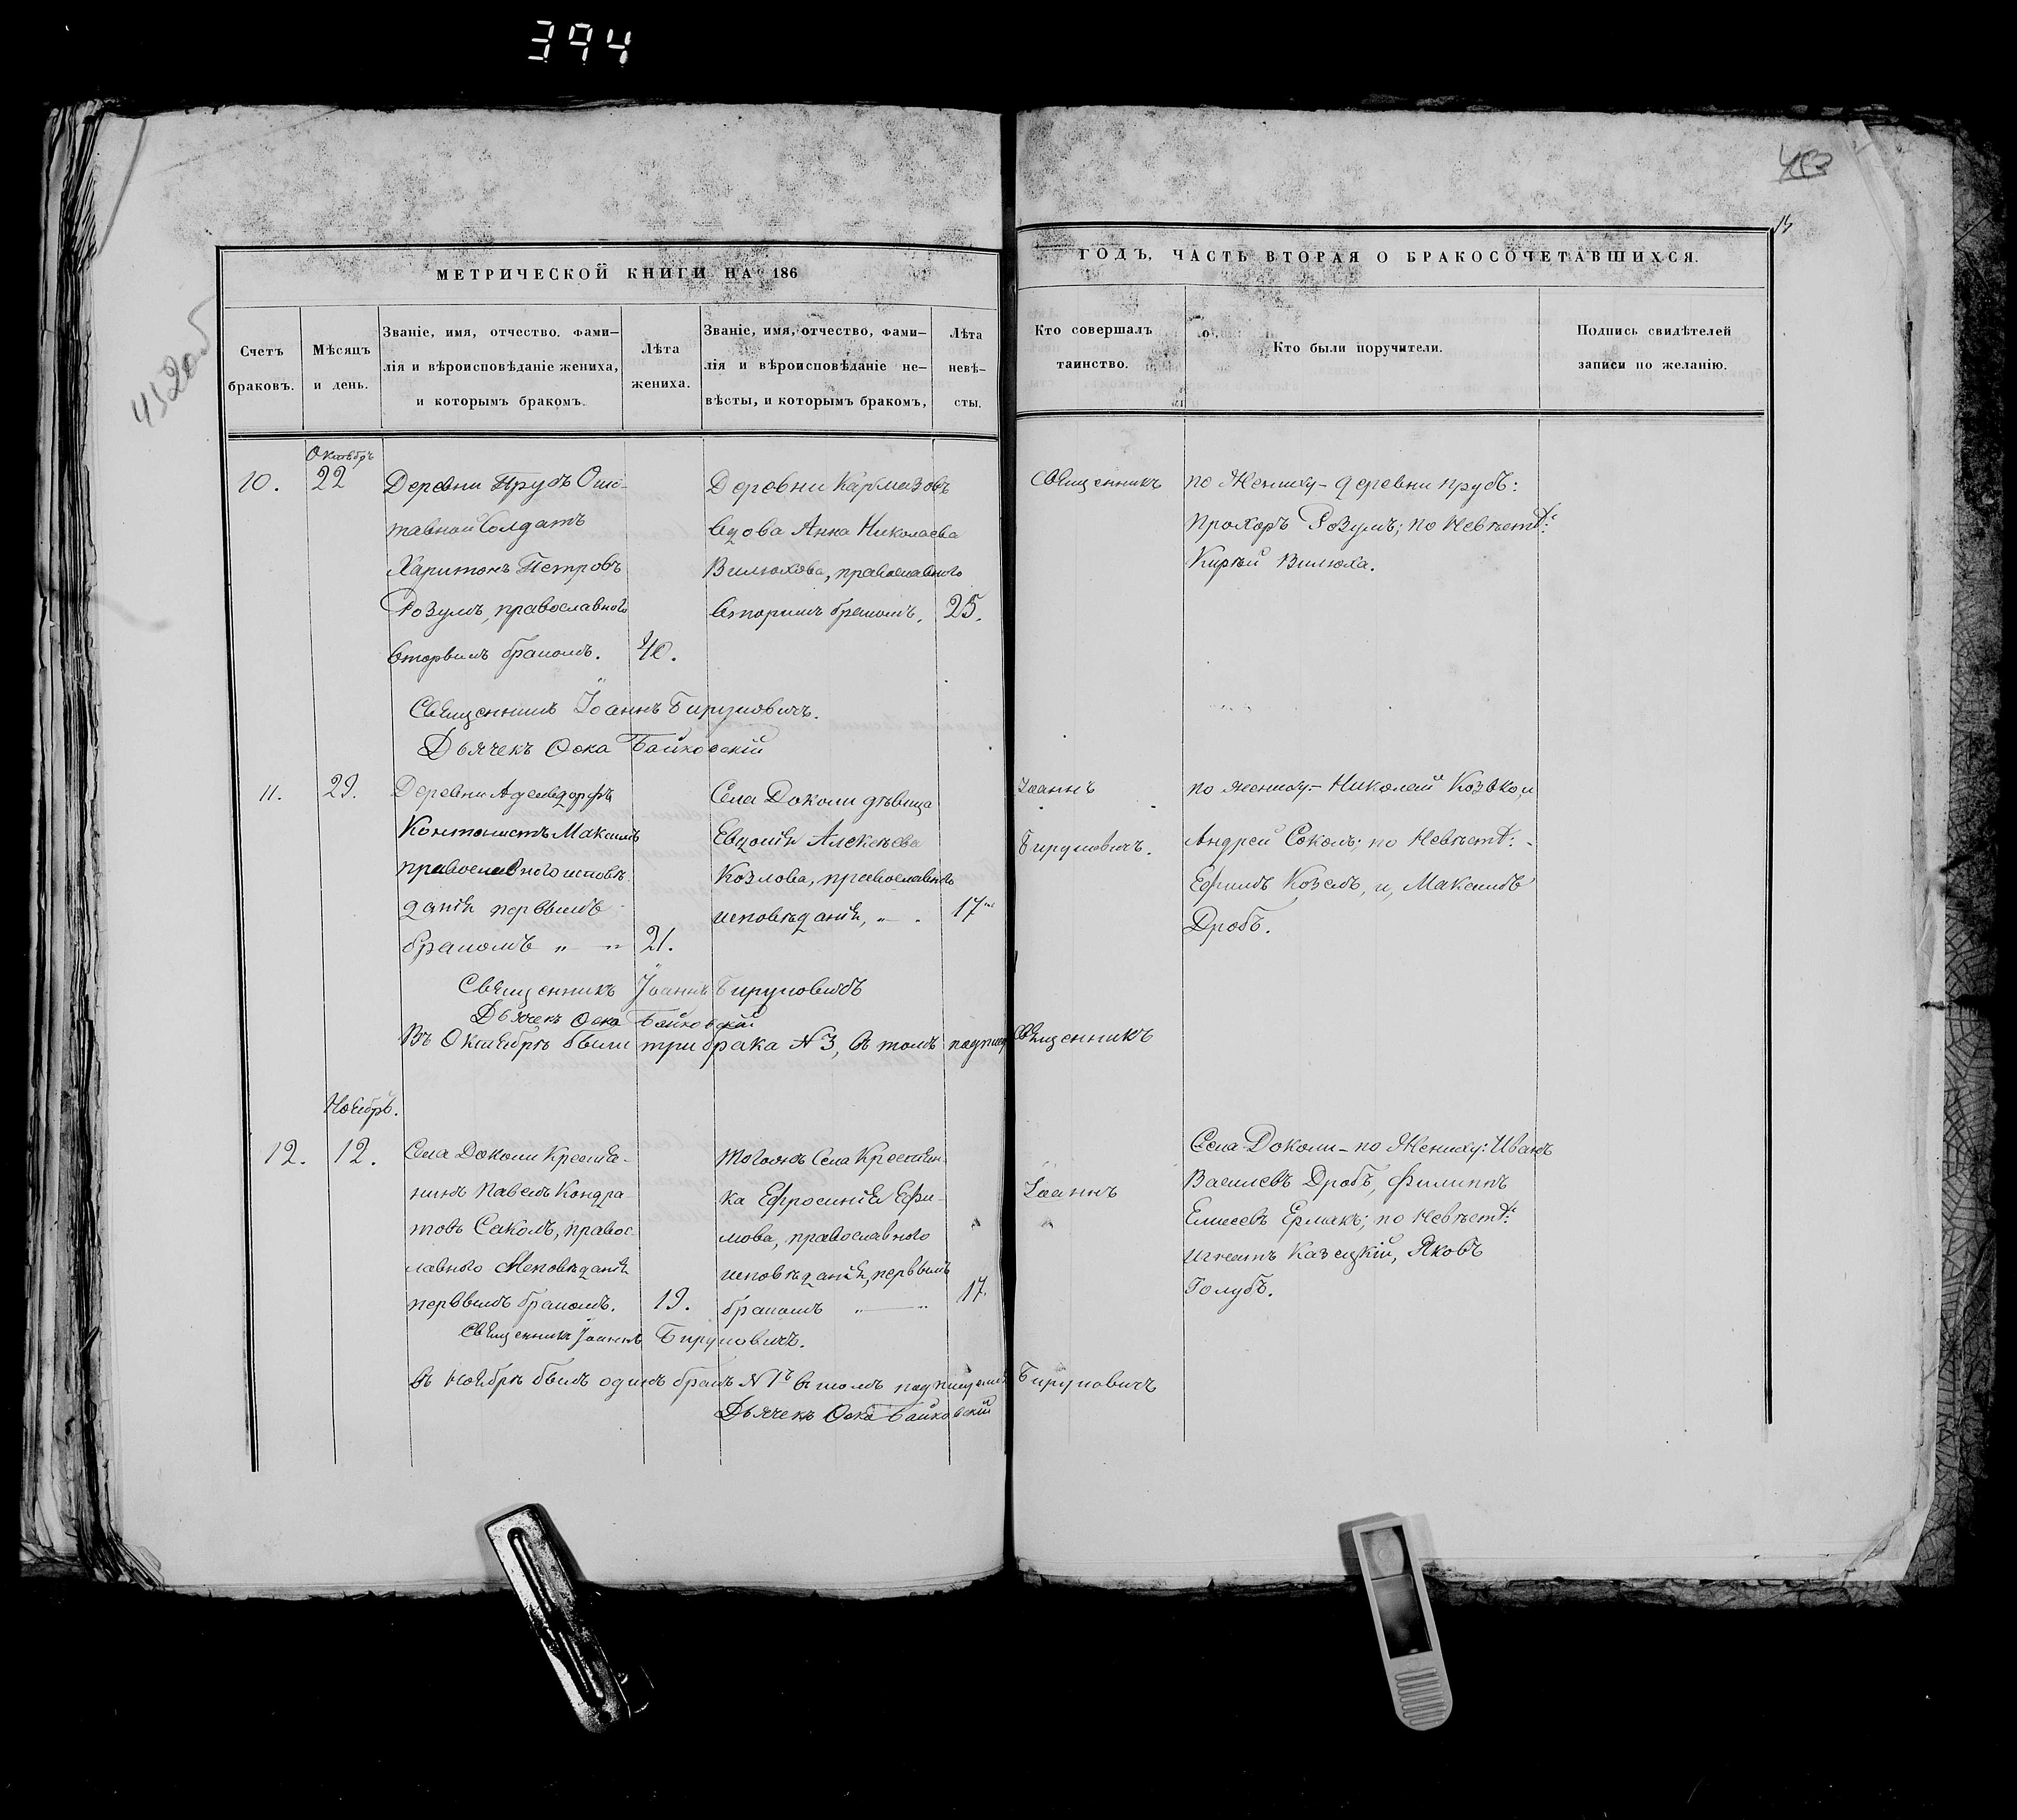 394
432об
453
МЕТРИЧЕСКОЙ КНИГИ НА 186
ГОДЪ, ЧАСТЬ ВТОРАЯ О БРАКОСОЧЕТАВШИХСЯ.
Счетъ
браковъ.
Мѣсяцъ
и день.
Званіе, имя, отчество. фами-
лія и вѣроисповѣданіе жениха,
и которымъ бракомъ.
Лѣта
жениха.
Званіе, имя, отчество, фами-
лія и вѣроисповѣданіе не-
вѣсты, и которымъ бракомъ,
Лѣта
невѣ-
сты.
Кто совершалъ
таинство.
Кто были поручители.
Подпись свидѣтелей
записи по желанію.
Октябрь
10.
22
Деревни Прудъ От-
тавной Солдатъ
Харитонъ Петровъ
Розумъ, православного
вторымъ бракомъ.
40.
Деревни Кармазовъ
вдова Анна Николаева
Вилюхова, православного
вторимъ бракомъ.
25.
Священникъ
по Жениху - деревни прудъ:
Прохоръ Розумъ; по Невѣстѣ:
Кирѣй Вилюха.
Священникъ Іоаннъ Бируковичъ.
Дьячекъ Фока Байковскій
11.
29.
Деревни
Контонистъ Максимъ
православного исповѣ-
данія первымъ
бракомъ " - "
21.
Села Доколи дѣвица
Евдокія Алексѣева
Козлова, православного
исповѣданія, " - .
17
Іоаннъ
Бируковичъ.
по жениху - Николай Козько, и
Андрей Соколъ; по Невѣстѣ: -
Ефимъ Козелъ, и, Максимъ
Дробъ.
Священникъ Іоаннъ Бируковичъ
Дьячекъ Фока Байковскій
Въ Октябрѣ были три брака N 3, въ томъ подпис
Священникъ
Ноябрь.
12.
12.
Села Доколи Крестья-
нинъ Павелъ Кондра-
товъ Саколъ, правос-
лавного Исповѣданія
первымъ бракомъ.
19.
Тогожъ Села Крестьян-
ка Ефросинія Ефи-
мова, православного
исповѣданія, первымъ
бракомъ " — "
17.
Іоаннъ
Села Доколи - по Жениху: Иванъ
Васильевъ Дробъ, Филиппъ
Елисеевъ Ермакъ; по Невѣстѣ:
Игнатъ Казецкій, Яковъ
Голубъ.
Священникъ Іоаннъ Бируковичъ.
Въ Ноябрѣ былъ одинъ бракъ N 1ъ въ томъ
Бируковичъ
Дьячекъ Фока Байковскій